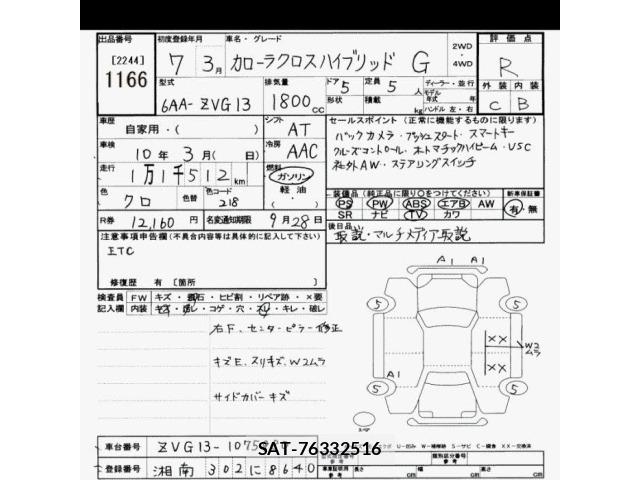 出品番号 初度登録年月 車名・グレード 2WD・4WD 評価点
[2244] 7年 3月 カローラクロスハイブリッド G R
1166 型式 排気量 ドア 5 定員 5人 ディーラー・並行 外装 内装
6AA-ZVG13 1800cc 形状 積載 kg モデル年式 年 ハンドル 左・右 C B
車歴 自家用・( ) シフト AT セールスポイント(正常に機能するものに限ります)
車検 10年 3月(日) 冷房 AAC バックカメラ・プッシュスタート・スマートキー
走行 1万1千512km 燃料 ガソリン 軽油 クルーズコントロール・オートマチックハイビーム・VSC
社外AW・ステアリングスイッチ
色 クロ 色替 色コード 218 装備品(純正品に限り○をつけてください) 新車保証書
PS PW ABS エアB AW 有・無
SR ナビ TV カワ
R券 12,160円 名変通知期限 9月28日 後日品
取説・マルチメディア取説
注意事項申告欄(不具合内容等は具体的に記入して下さい)
ETC
修復歴 有 [箇所 ]
A1 A1
検査員記入欄 FW キズ・飛石・ヒビ割・リペア跡・×要
内装 キズ・汚レ・コゲ・穴・スリ・キレ・破レ
5 5
右F、センターピラー修正
XX
XX
W2ムラ
キズE、スリキズ、W2ムラ
A1
5 5
サイドカバーキズ
車台番号 ZVG13-1075
SAT-76332516
登録番号 湘南 302 に 8640
長さ cm 幅 cm 高さ cm